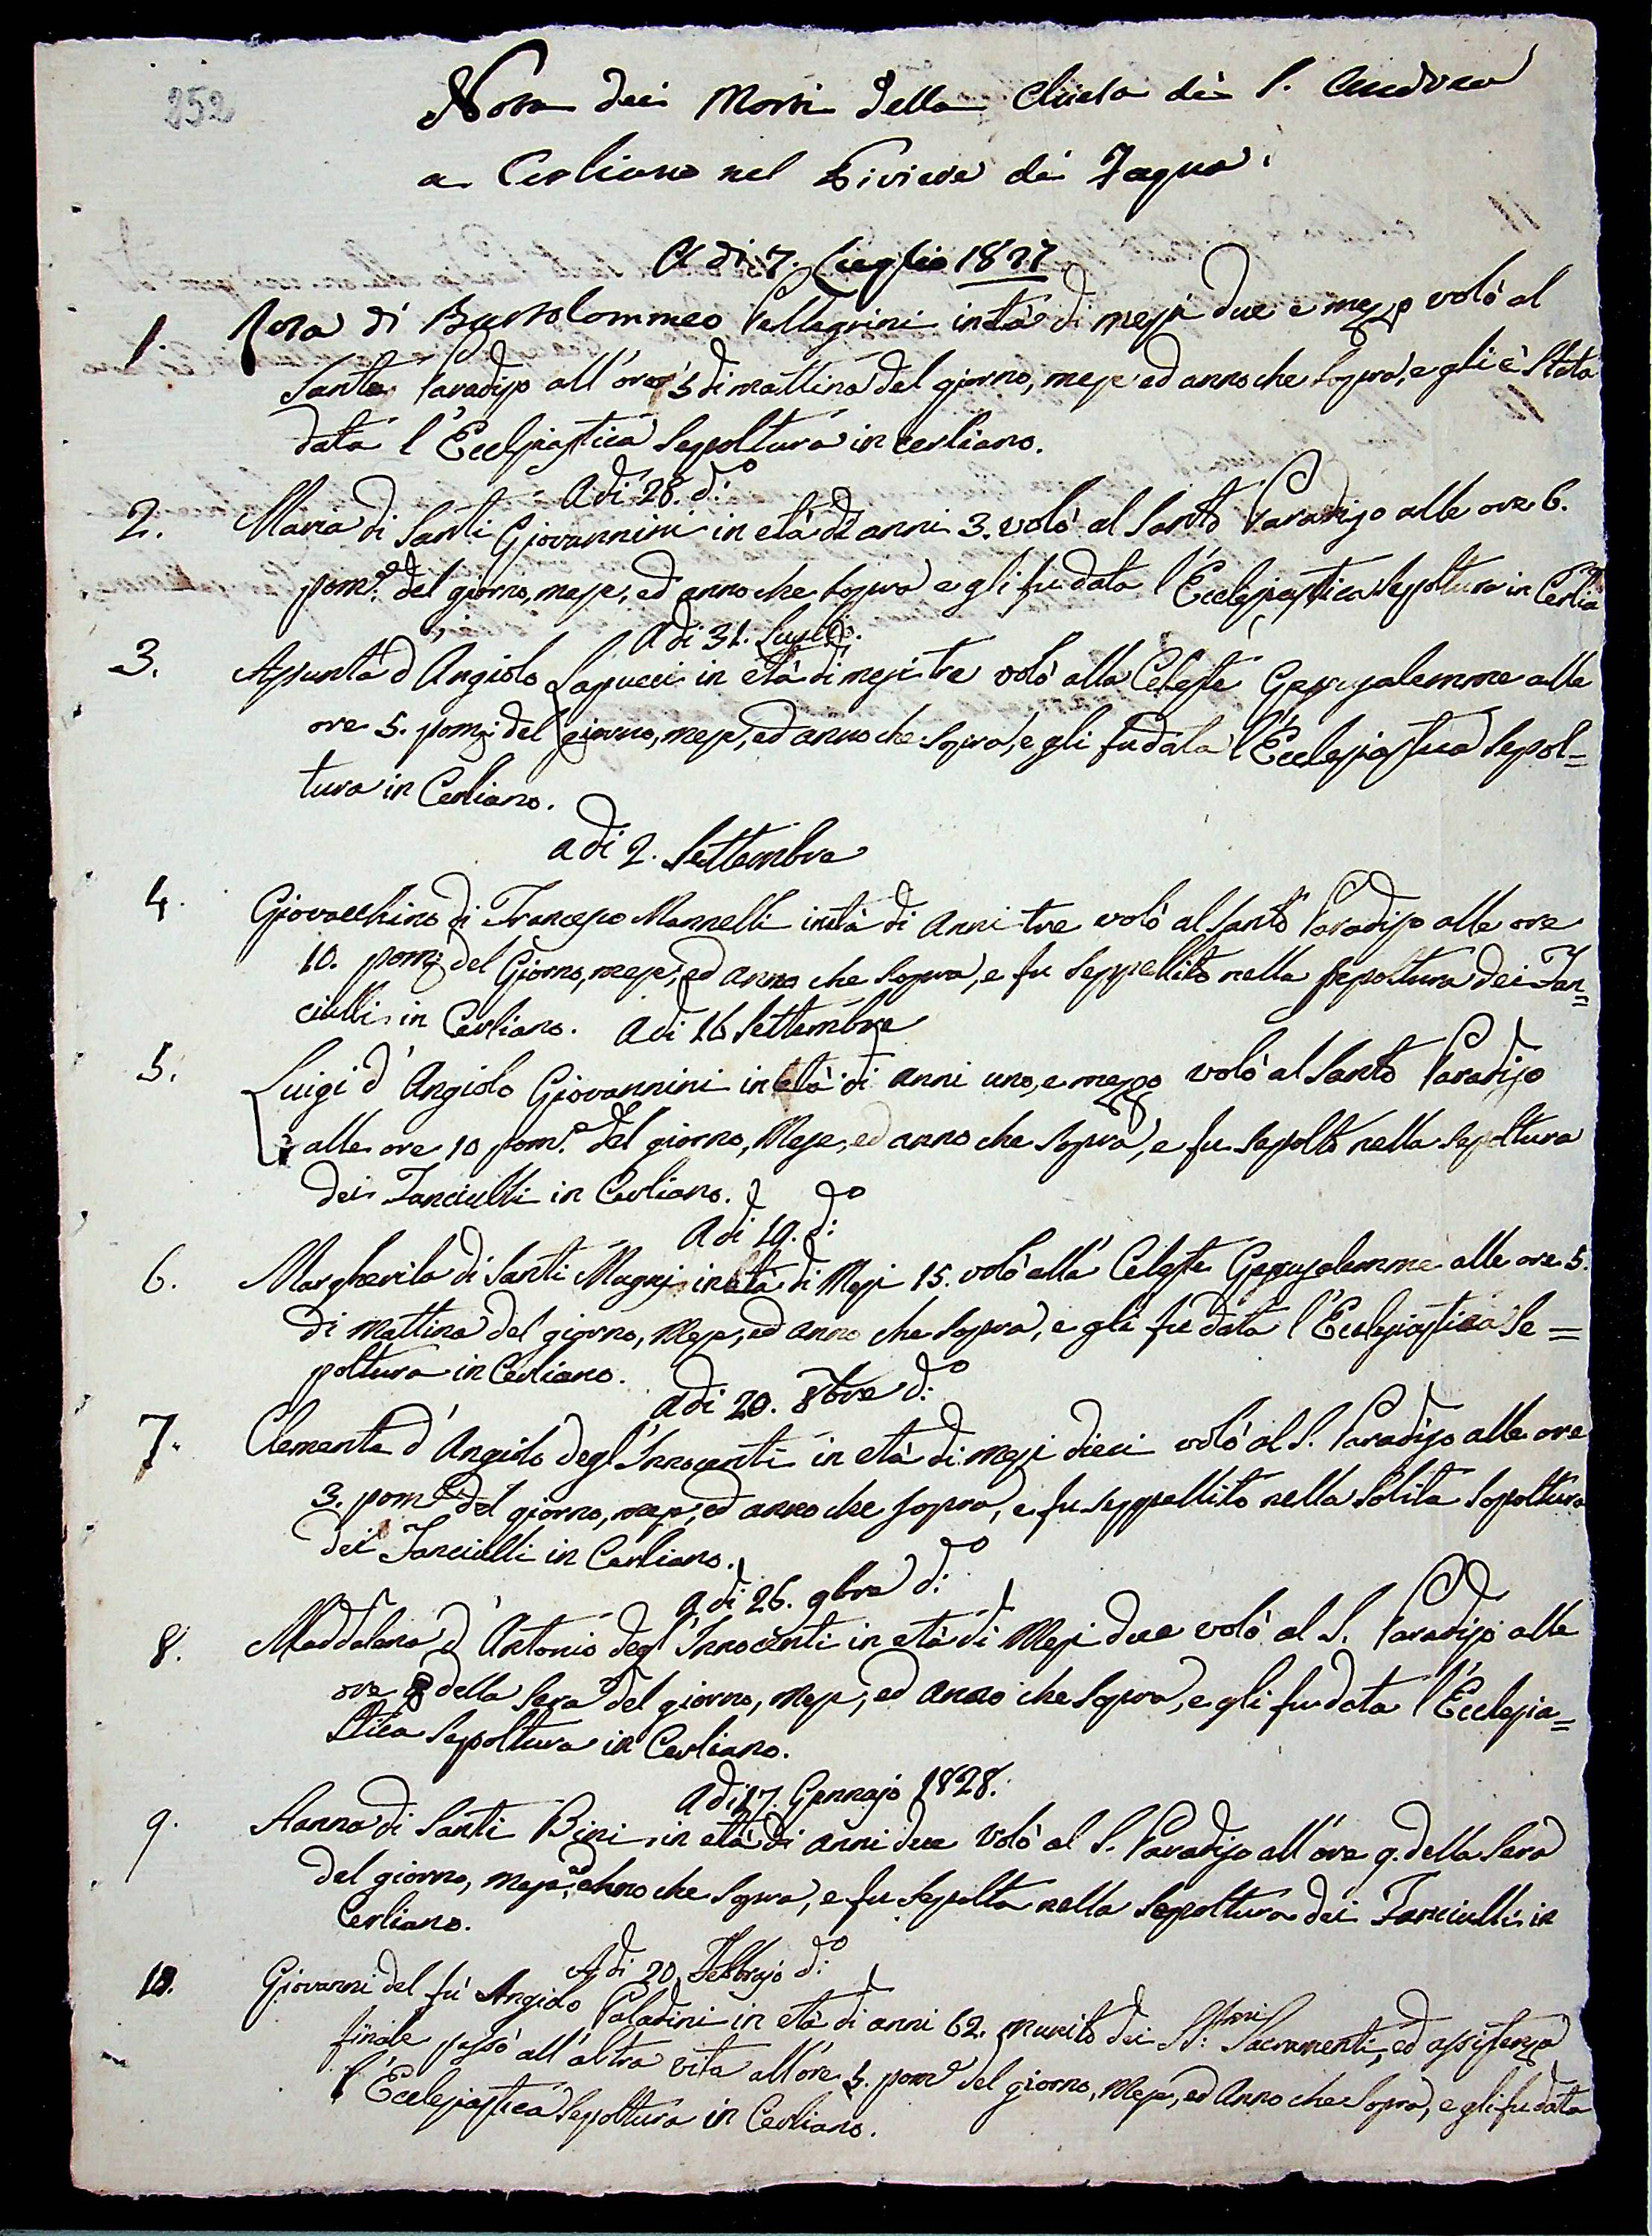 252
Nota dei Morti della Chiesa di S. Andrea
a Cerliano nel Piviere di Fagna.
A dì 7. Luglio 1827
1. Rosa di Bartolommeo Pellegrini in età di mesi due e mezzo volò al
Santo Paradiso all'ore 5 di mattina del giorno, mese ed anno che sopra, e gli è stata
data l'Ecclesiastica Sepoltura in Cerliano.
A dì 28. d.o
2. Maria di Santi Giovannini in età di anni 3. volò al Santo Paradiso alle ore 6.
pom.e del giorno, mese, ed anno che sopra e gli fu data l'Ecclesiastica Sepoltura in Cerlia
A dì 31. Luglio.
3. Assunta d'Angiolo Lapucci in età di mesi tre volò alla Celeste Gerusalemme alle
ore 5. pom: del giorno, mese, ed anno che sopra, e gli fu data l'Ecclesiastica Sepol=
tura in Cerliano.
a dì 2. Settembre
4. Giovacchino di Francesco Mannelli in età di Anni tre volò al Santo Paradiso alle ore
10. pom: del Giorno, mese, ed anno che sopra, e fu seppellito nella sepoltura dei Fan=
ciulli in Cerliano. A dì 16 Settembre
5. Luigi d'Angiolo Giovannini in età di anni uno, e mezzo volò al Santo Paradiso
alle ore 10 pom.e del giorno, Mese, ed anno che sopra, e fu sepolto nella sepoltura
dei Fanciulli in Cerliano.
A dì 19. d.o
6. Margherita di Santi Magni in età di Mesi 15. volò alla Celeste Gerusalemme alle ore 5.
di mattina del giorno, Mese, ed anno che sopra, e gli fu data l'Ecclesiastica Se=
poltura in Cerliano.
A dì 20. 8bre d.o
7. Clemente d'Angiolo degl'Innocenti in età di mesi dieci volò al S. Paradiso alle ore
3. pom.e del giorno, mese, ed anno che sopra, e fu seppellito nella solita sepoltura
dei Fanciulli in Cerliano.
A dì 26. 9bre d.o
8. Maddalena d'Antonio degl'Innocenti in età di Mesi due volò al S. Paradiso alle
ore 8 della sera del giorno, Mese, ed anno che sopra, e gli fu data l'Ecclesia=
stica Sepoltura in Cerliano.
A dì 17. Gennajo 1828.
9. Anna di Santi Bini in età di anni due volò al S. Paradiso all'ore 9. della sera
del giorno, Mese, ed anno che sopra, e fu sepolta nella sepoltura dei Fanciulli in
Cerliano.
A dì 20 Febbrajo d.o
10. Giovanni del fù Angiolo Paladini in età di anni 62. munito dei SS.mi Sacramenti, ed assistenza
finale passò all'altra vita all'ore 5. pom.e del giorno, Mese, ed Anno che sopra, e gli fu data
l'Ecclesiastica Sepoltura in Cerliano.